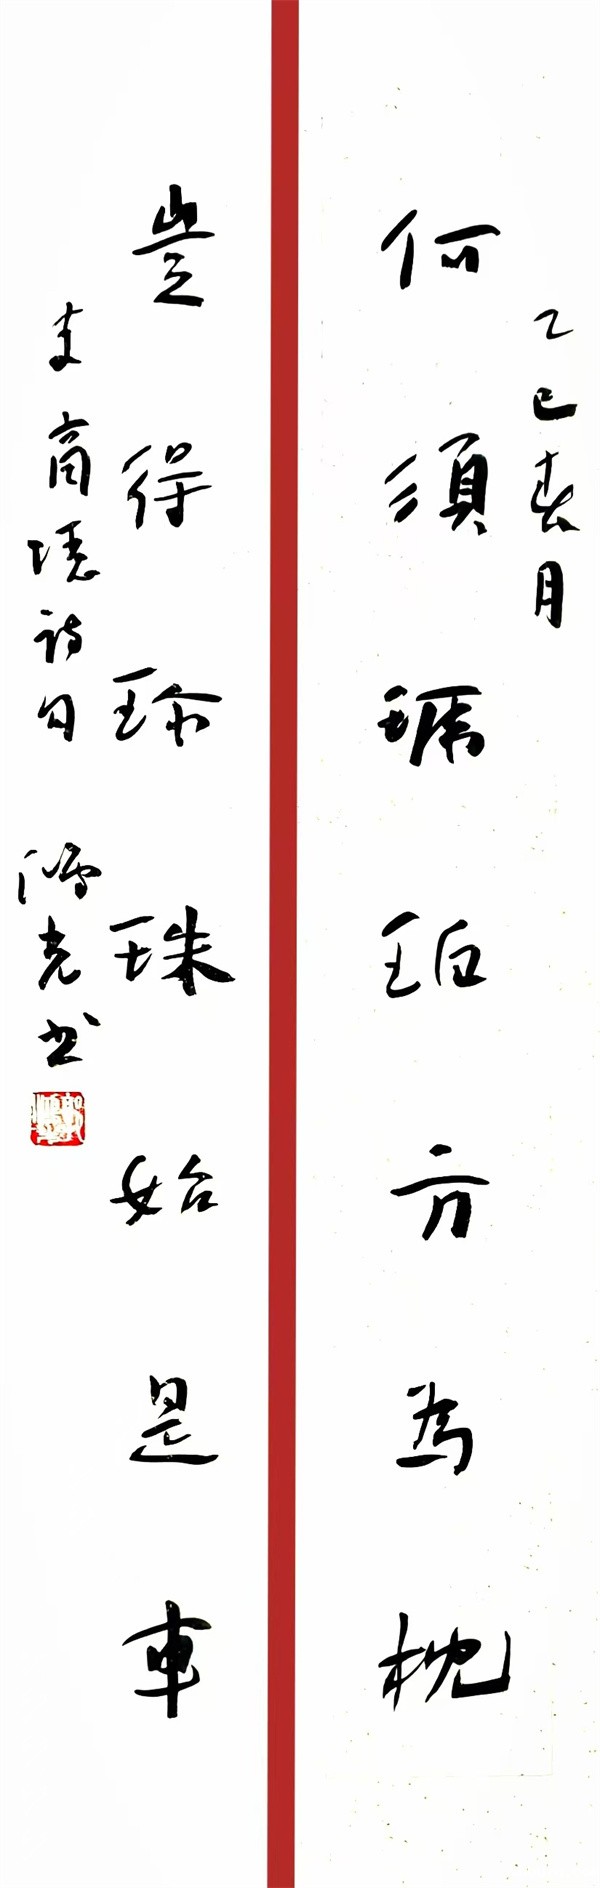 乙巳春月
何須琥珀方為枕
豈得珍珠始是車
李商隱詩句 鴻光书